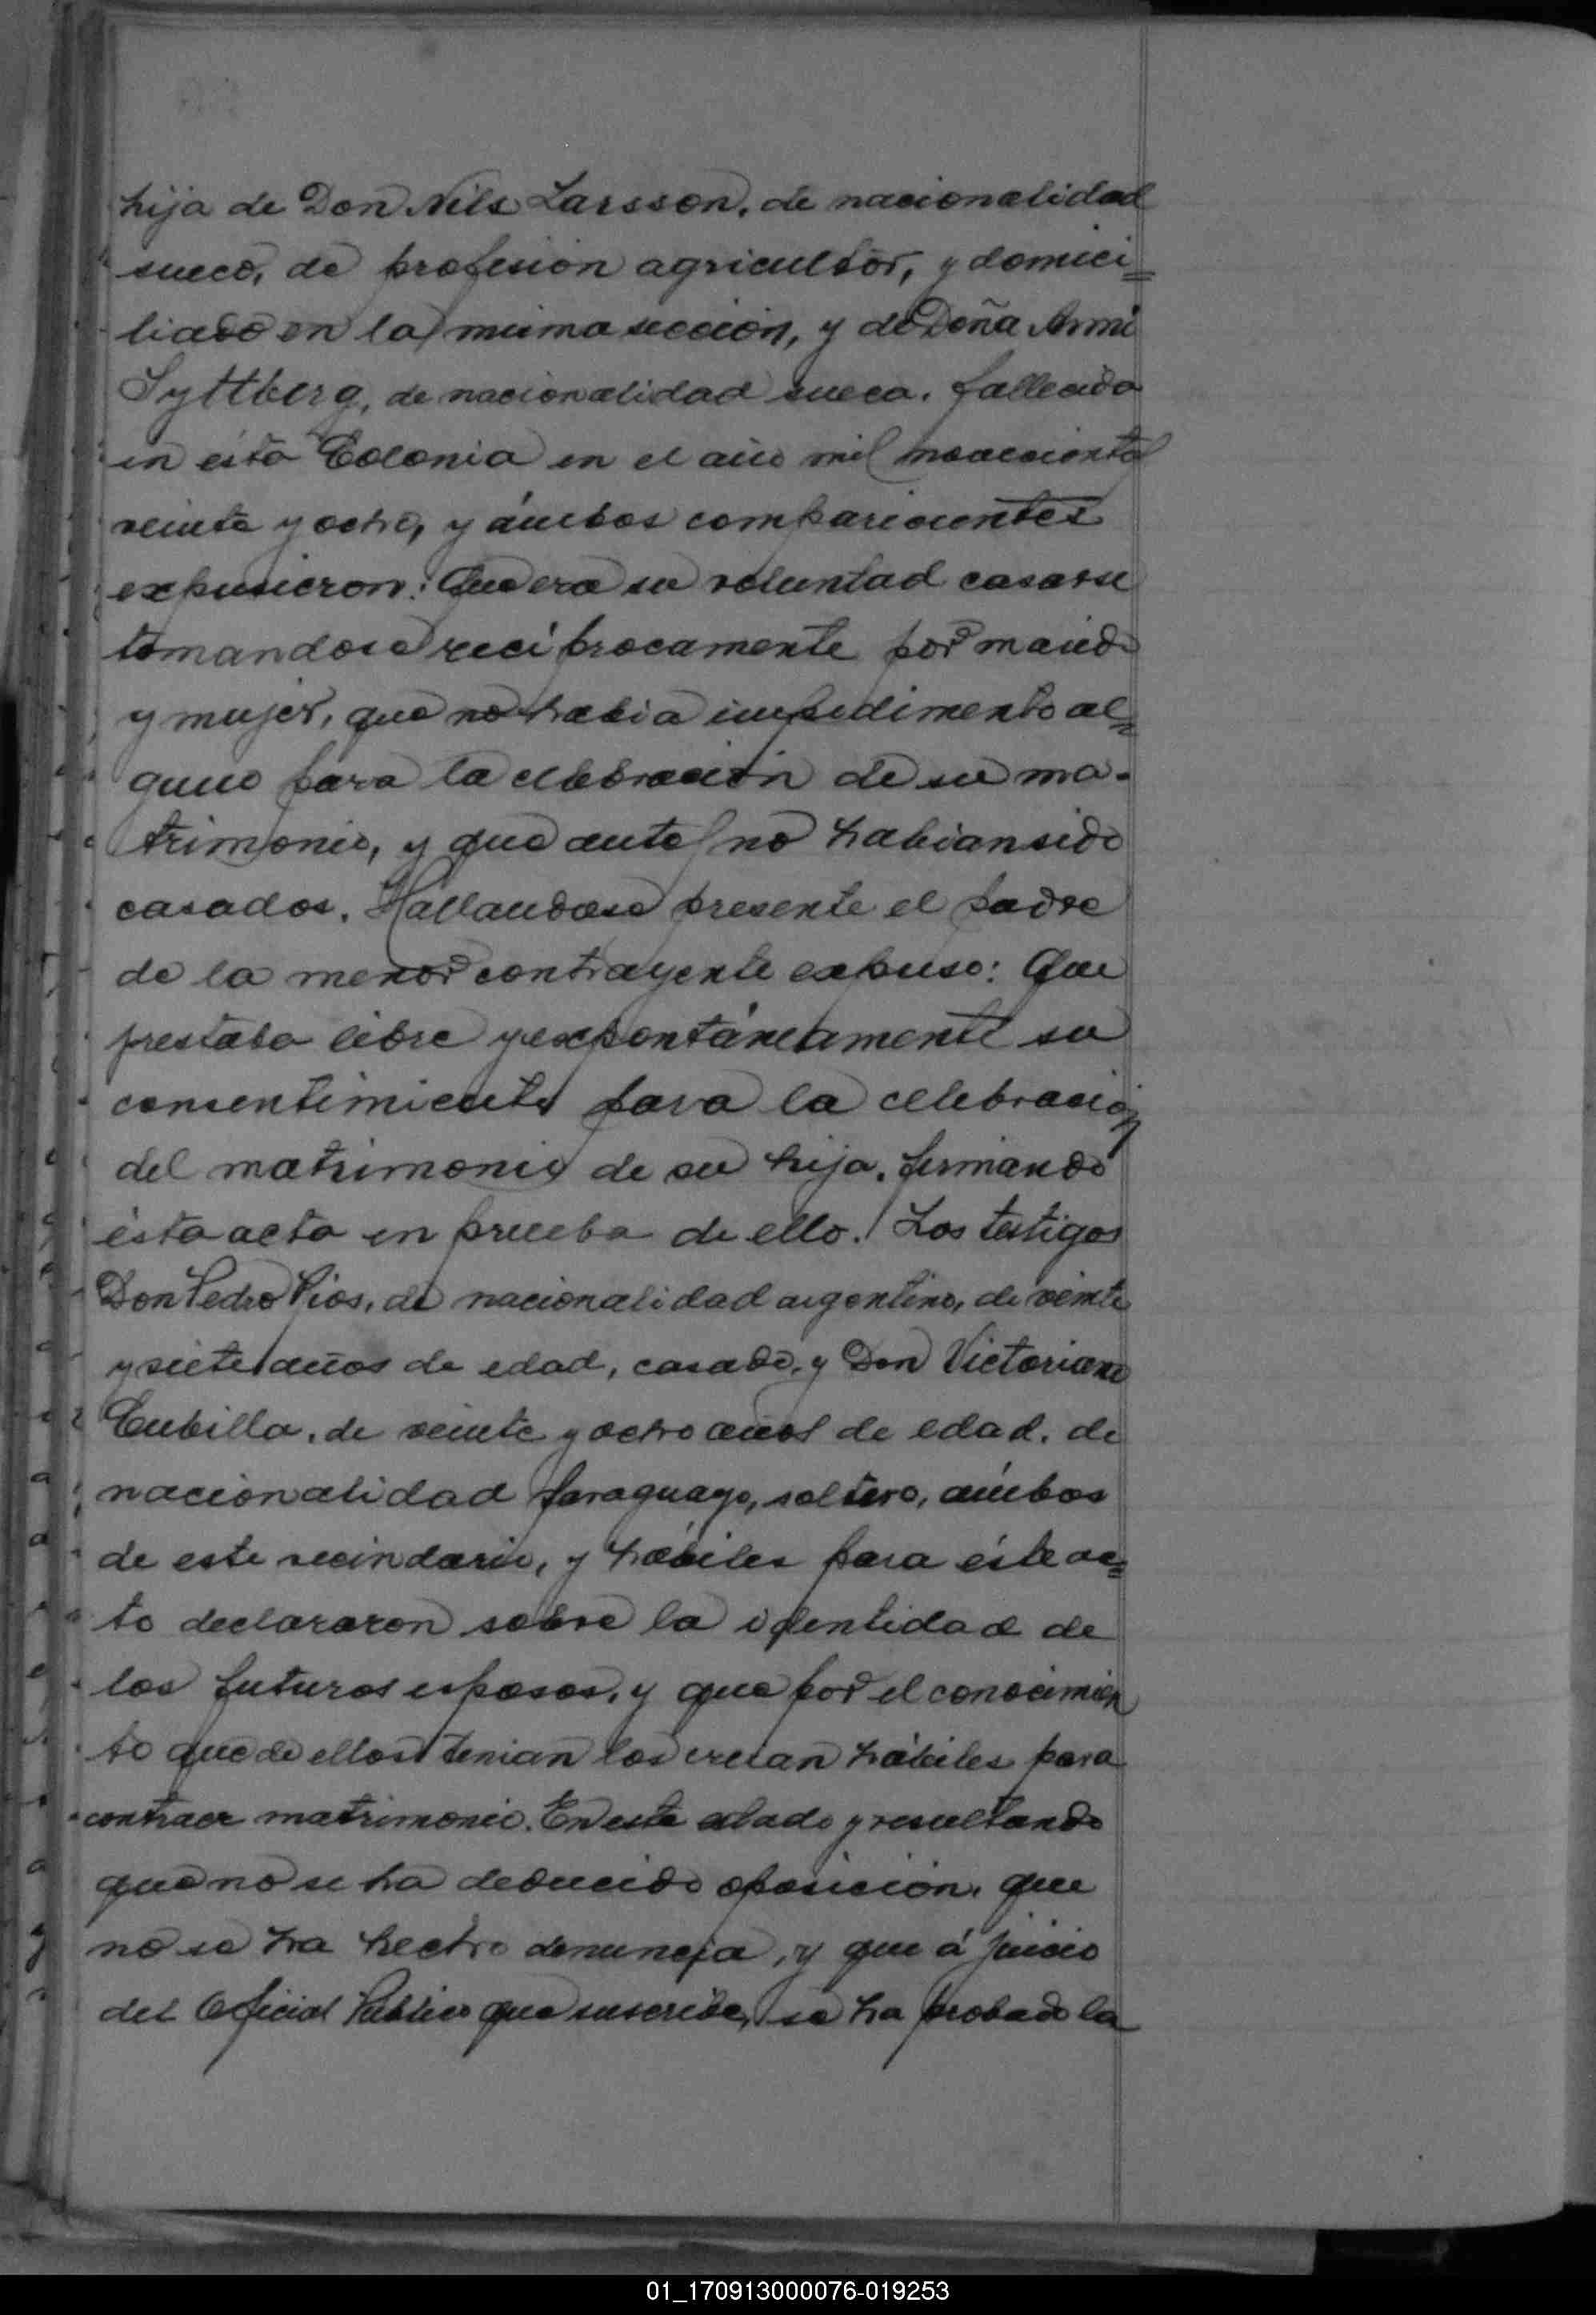 hija de Don Nils Larsson, de nacionalidad
sueco, de profesion agricultor, y domici=
liado en la misma sección, y de Doña Anni
Syttberg, de nacionalidad sueca, fallecida
en ésta Colonia en el año mil novecientos
veinte y ocho, y ámbos comparecientes
expusieron: Que era su voluntad casarse
tomandose recíprocamente por marido
y mujer, que no habia impedimento al=
guno para la celebración de su ma-
trimonio, y que antes no habian sido
casados. Hallandose presente el padre
de la menor contrayente expuso: Que
prestaba libre y expontáneamente su
consentimiento para la celebración
del matrimonio de su hija, firmando
ésta acta en prueba de ello. Los testigos
Don Pedro Rios, de nacionalidad argentino, de veinte
y siete años de edad, casado, y Don Victoriano
Cubilla, de veinte y ocho años de edad, de
nacionalidad paraguayo, soltero, ámbos
de este vecindario, y hábiles para éste ac=
to declararon sobre la identidad de
los futuros esposos, y que por el conocimien
to que de ellos tenian los creian hábiles para
contraer matrimonio. En este estado y resultando
que no se ha deducido oposición, que
no se ha hecho denuncia, y que á juicio
del Oficial Público que suscribe, se ha probado la
01_170913000076-019253